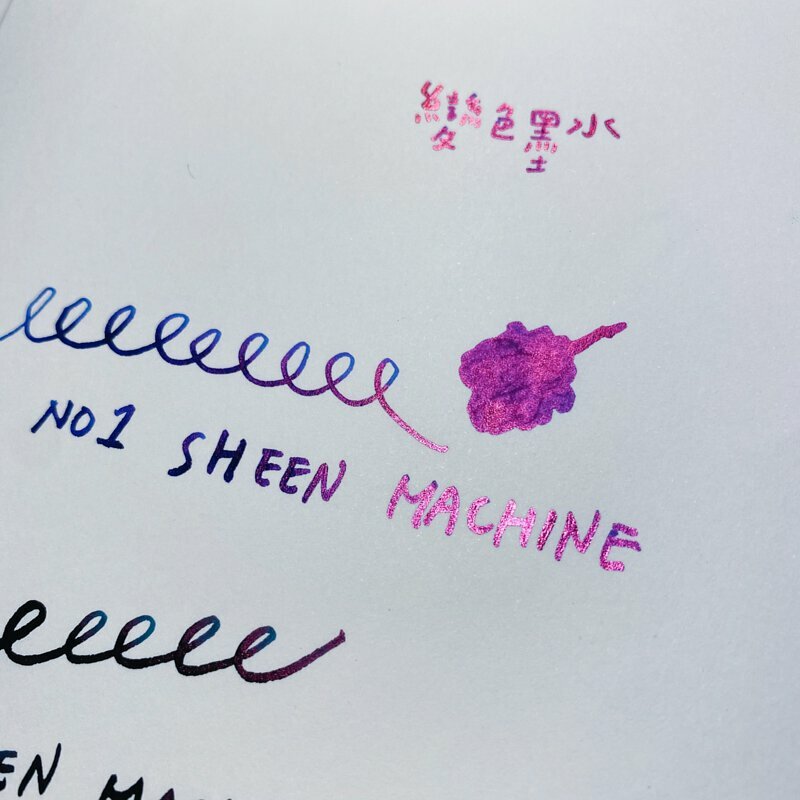 變色墨水
NO1 SHEEN MACHINE
EN MA